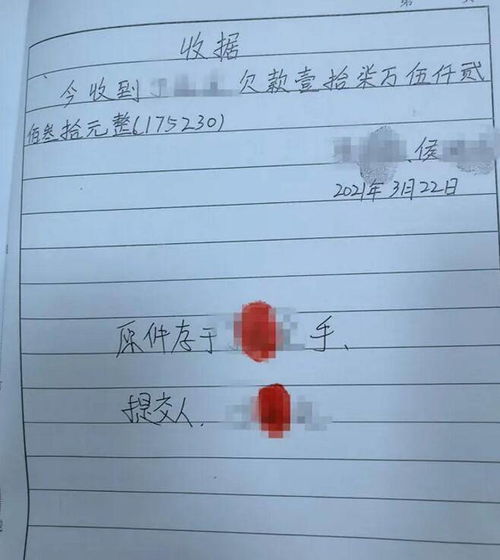 收据
今收到 欠款壹拾柒万伍仟贰
佰叁拾元整(175230)
侯
2021年3月22日
原件存于 手、
提交人、